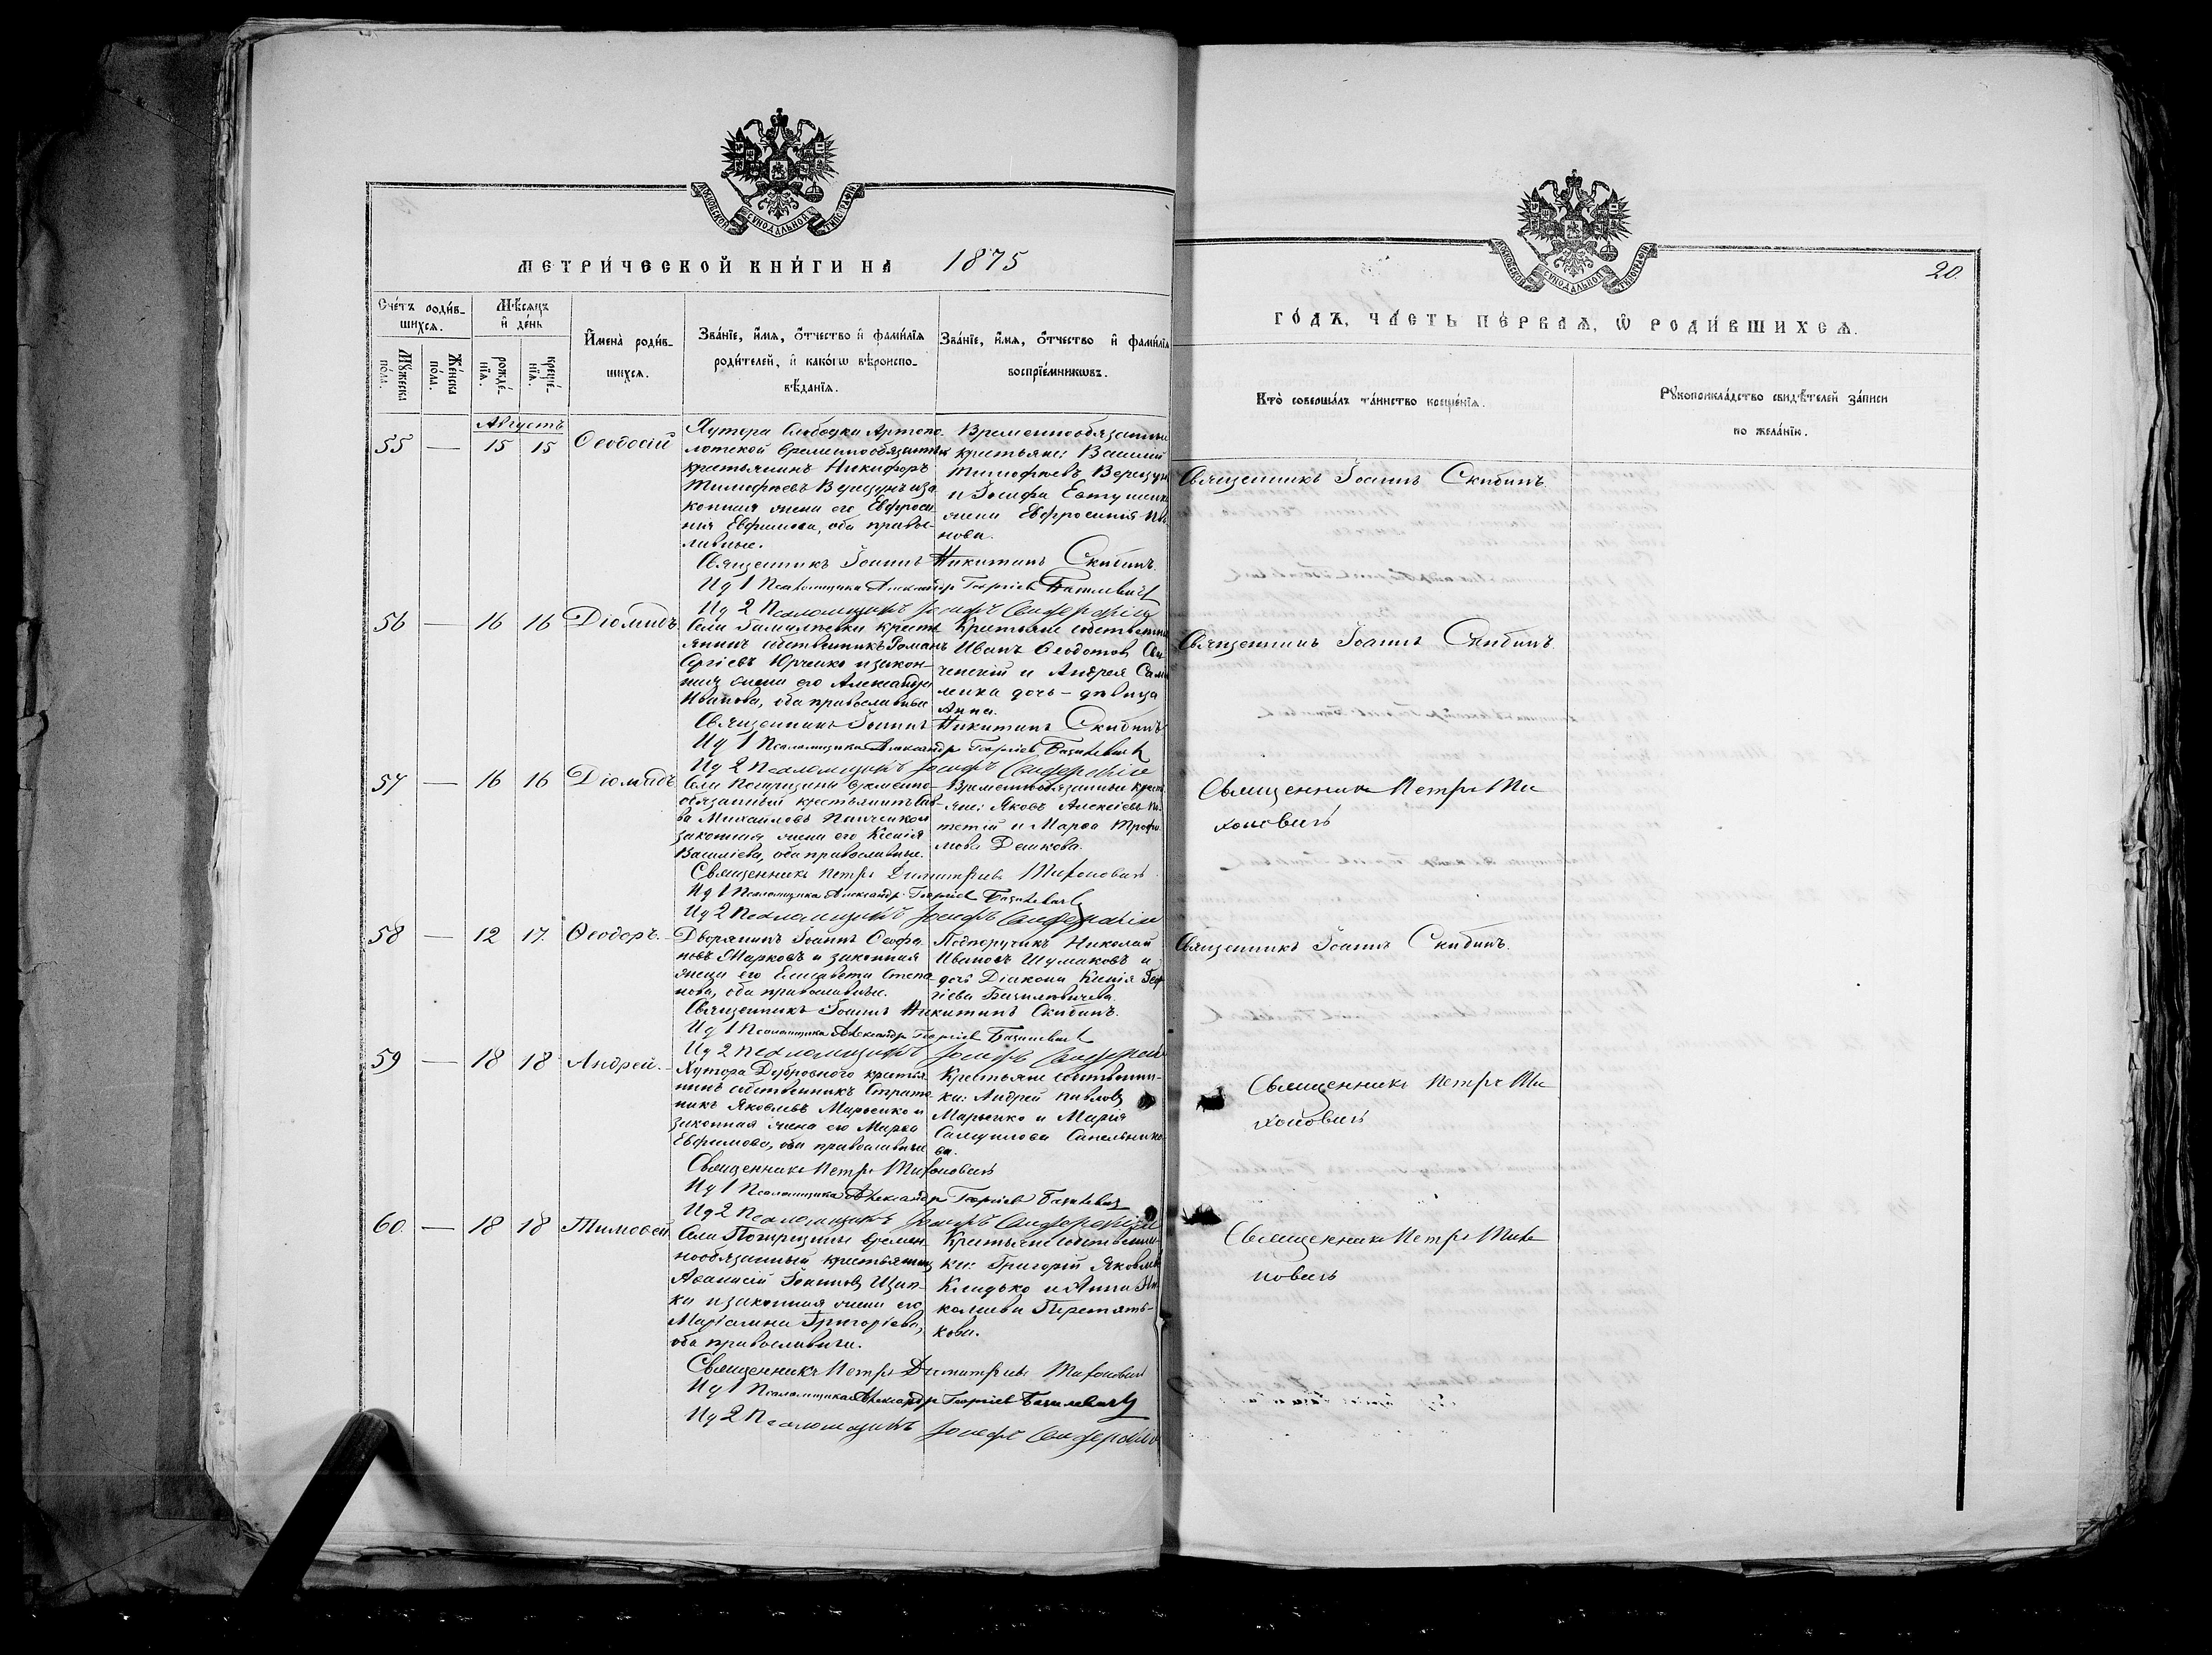 МОСКОВСКОЙ СѴНОДАЛЬНОЙ ТИПОГРАФІИ
МЕТРИ́ЧЕСКОЙ КНИ́ГИ НА 1875
Сче́тъ роди́в-
шихсѧ.
Мꙋ́жеска по́ла.
Же́нска по́ла.
Мѣ́сѧцъ и҆ де́нь
рожде́-
нїѧ.
креще́-
нїѧ.
И҆мена̀ роди́в-
шихсѧ.
Зва́нїе, и҆́мѧ, ѻ҆́тчество и҆ фами́лїѧ
роди́телей, и҆ како́гѡ вѣроиспо-
вѣ́данїѧ.
Зва́нїе, и҆́мѧ, ѻ҆́тчество и҆ фами́лїѧ
воспрїе́мникѡвъ.
Августъ
55 — 15 15 Ѳеодосій
Хутора Слободки Артопо-
лотской временнообязанный
крестьянинъ Никифоръ
Тимофѣевъ Верещунъ и за-
конная жена его Евфроси-
нія Евфимова, оба право-
славные.
Временнообязанные
крестьяне: Василій
Тимофѣевъ Верещунъ
и Іосифа Евтушенка
жена Евфросинія
нова.
Священникъ Іоаннъ Никитинъ Скибинъ.
Ид 1 Псаломщика Александр Георгіев Базилевич
Ид 2 Псаломщикъ Іосифъ
56 — 16 16 Діомидъ.
Села Гамалѣевки кресть-
янинъ собственникъ Романъ
Сергіевъ Юрченко и закон-
ная жена его Александра
Иванова, оба православные
Крестьяне собственни
Иванъ Ѳеодотовъ
ченскій и Андрея
ленка дочь – дѣвица
Анна.
Священникъ Іоаннъ Никитинъ Скибинъ
Ид 1 Псаломщика Александр Георгіев Базилевич
Ид 2 Псаломщикъ Іосифъ
57 — 16 16 Діомидъ
Села временно-
обязанный крестьянинъ Сав-
ва Михайловъ Панченко и
законная жена его Ксенія
Василіева, оба православные.
Временнообязанные кресть
яне: Яковъ Алексіевъ
и Марѳа Трофи-
мова Дешкова.
Священникъ Петръ Димитріевъ Тихоновичъ
Ид 1 Псаломщика Александр Георгіев Базилевич
Ид 2 Псаломщикъ Іосифъ
58 — 12 17. Ѳеодоръ.
Дворянинъ Іоаннъ Ѳеофа-
новъ Марковъ и законная
жена его Елисавета Степа-
нова, оба православные.
Подпоручикъ Николай
Ивановъ Шумаковъ и
дочь Діакона Ксенія Геор-
гіева Базилевичева.
Священникъ Іоаннъ Никитинъ Скибинъ.
Ид 1 Псаломщика Александр Георгіев Базилевич
Ид 2 Псаломщикъ Іосифъ
59 — 18 18 Андрей.
Хутора Дубровного крестья-
нинъ собственникъ Страто-
никъ Яковлевъ Марченко и
законная жена его Марѳа
Евфимова, оба православные
Крестьяне собственни-
ки: Андрей Павловъ
Марченко и Марія
Самуилова
ва.
Священникъ Петръ Тихоновичъ
Ид 1 Псаломщика Александр Георгіев Базилевич
Ид 2 Псаломщикъ Іосифъ
60. — 18 18 Тимоѳей.
Села времен-
нообязанный крестьянинъ
Аѳанасій Іоанновъ Щип-
ка и законная жена его
Маріамна Григоріева,
оба православные.
Крестьяне собственни-
ки: Григорій Яковлевъ
и Анна Ни-
колаева Перетять-
кова.
Священникъ Петръ Димитріевъ Тихоновичъ
Ид 1 Псаломщика Александр Георгіев Базилевич
Ид 2 Псаломщикъ Іосифъ
МОСКОВСКОЙ СѴНОДАЛЬНОЙ ТИПОГРАФІИ
20.
ГО́ДЪ, ЧА́СТЬ ПЕ́РВАѦ, Ѡ҆ РОДИ́ВШИХСѦ.
Кто̀ соверша́лъ та́инство креще́нїѧ.
Рꙋкоприкла́дство свидѣ́телей за́писи
по жела́нїю.
Священникъ Іоаннъ Скибинъ.
Священникъ Іоаннъ Скибинъ.
Священникъ Петръ Ти
хоновичъ
Священникъ Іоаннъ Скибинъ.
Священникъ Петръ Ти
хоновичъ
Священникъ Петръ Тихо
новичъ